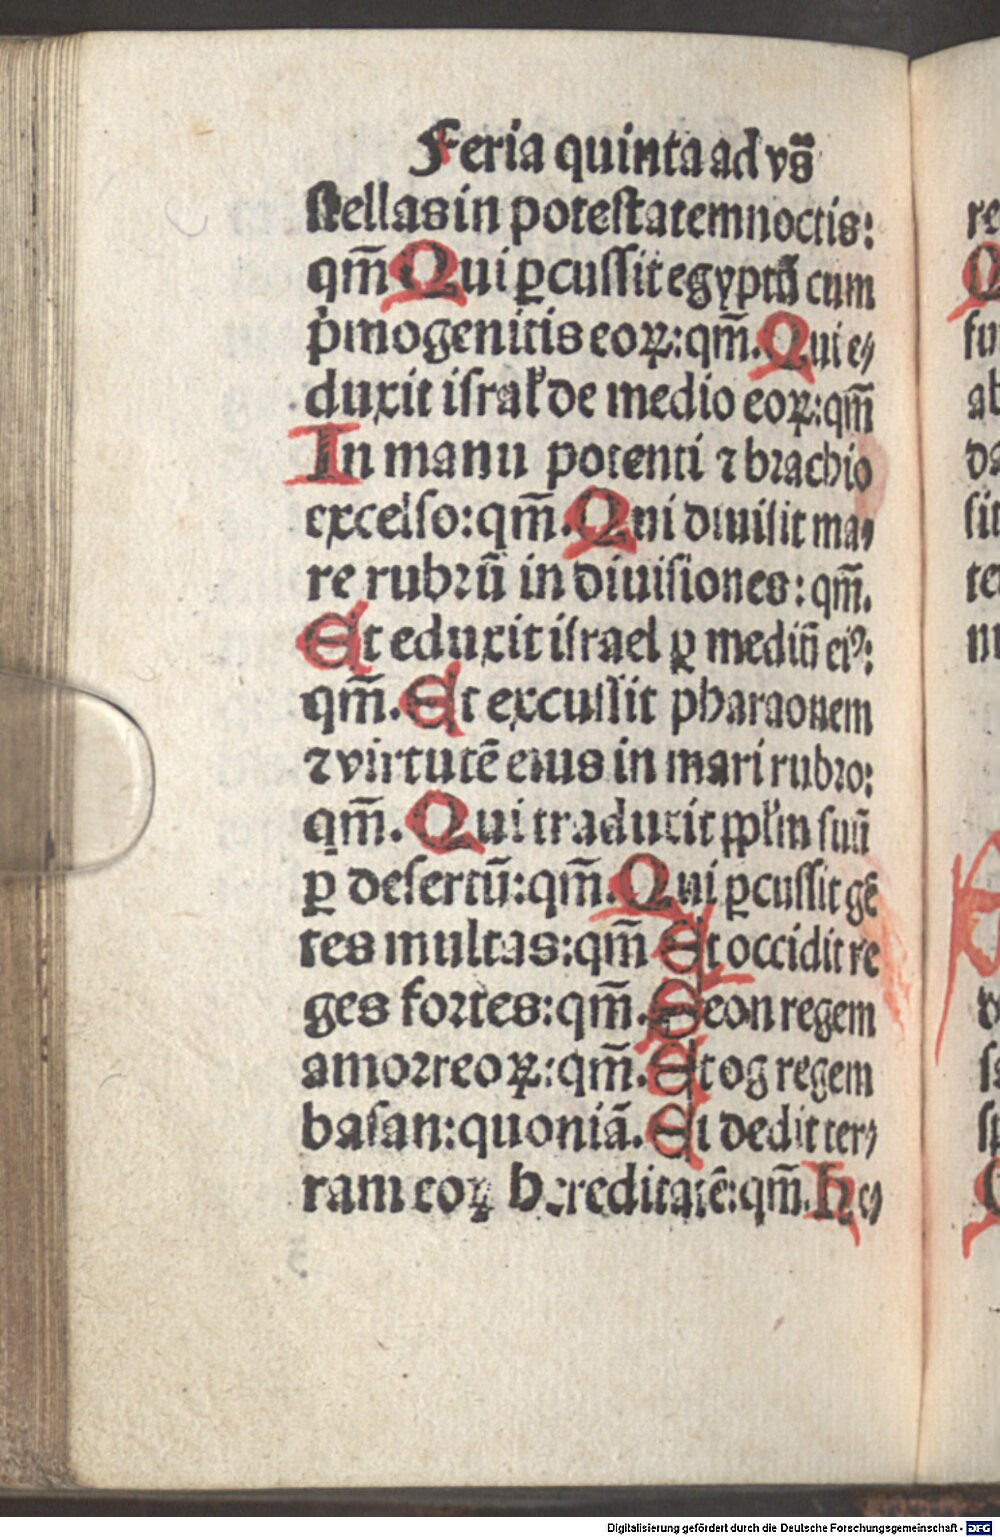 Feria quinta ad vs̄
stellas in potestatem noctis:
qm̄ Qui ꝑcussit egyptū cum
pͥmogenitis eoꝝ: qm̄. Qui e⸗
duxit isral̓ de medio eoꝝ: qm̄
In manu potenti ⁊ brachio
excelso: qm̄. Qui diuisit ma⸗
re rubrū in diuisiones: qm̄.
Et eduxit israel ꝑ mediū eiꝰ:
qm̄. Et excussit pharaonem
⁊ virtutē eius in mari rubro:
qm̄. Qui traduxit ppl̓m suū
ꝑ desertū: qm̄. Qui ꝑcussit gē
tes multas: qm̄ Et occidit re
ges fortes: qm̄. Seon regem
amorreoꝝ: qm̄. Et og regem
basan: quoniā. Et dedit ter⸗
ram eoꝝ hereditatē: qm̄. He⸗
re
Q
su
ab
da
sit
te
Digitalisierung gefördert durch die Deutsche Forschungsgemeinschaft - DFG